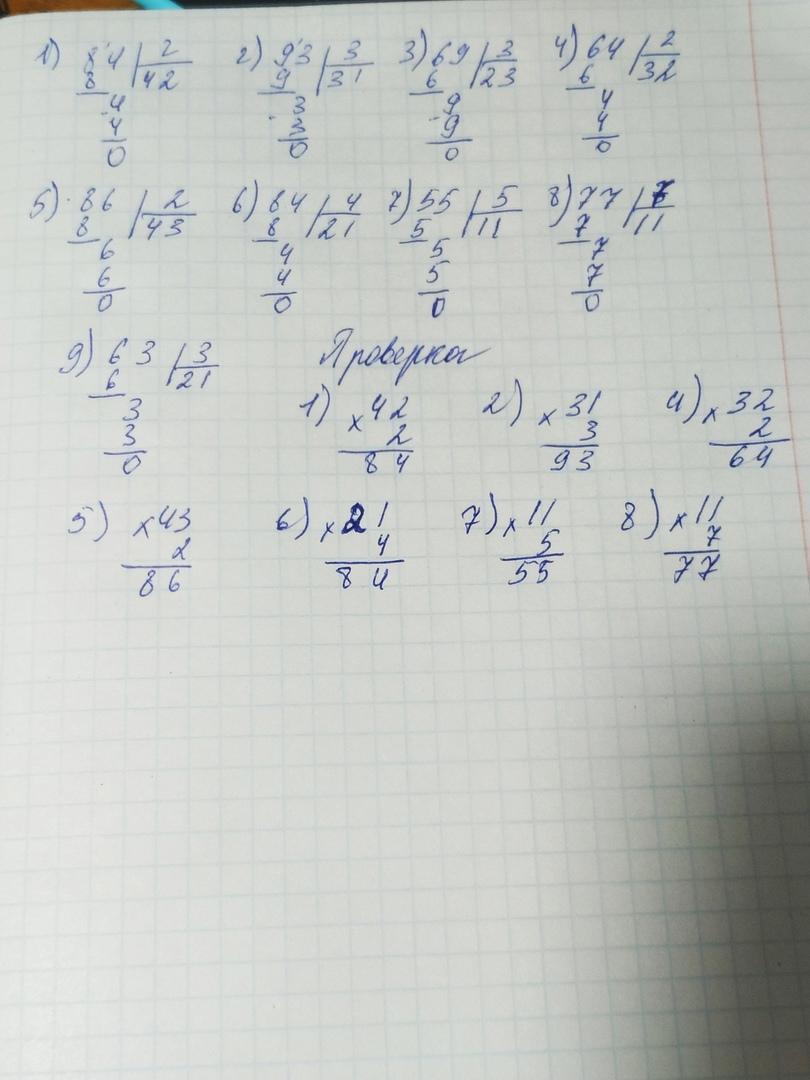 1) 84 | 2 2) 93 | 3 3) 69 | 3 4) 64 | 2
8 42 9 31 6 23 6 32
4 3 9 4
4 3 9 4
0 0 0 0
5) 86 | 2 6) 84 | 4 7) 55 | 5 8) 77 | 7
8 43 8 21 5 11 7 11
6 4 5 7
6 4 5 7
0 0 0 0
9) 63 | 3 Проверка
6 21
3 1) x 42 2) x 31 4) x 32
3 2 3 2
0 84 93 64
5) x 43 6) x 21 7) x 11 8) x 11
2 4 5 7
86 84 55 77